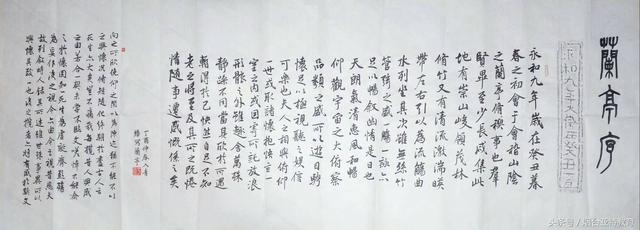 蘭亭序
永和九年歲在癸丑暮
春之初會于會稽山陰
之蘭亭脩禊事也羣
賢畢至少長咸集此
地有崇山峻領茂林
脩竹又有清流激湍暎
帶左右引以為流觴曲
水列坐其次雖無絲竹
管絃之盛一觴一詠亦
足以暢叙幽情是日也
天朗氣清惠風和暢
仰觀宇宙之大俯察
品類之盛所以遊目騁
懷足以極視聽之娛信
可樂也夫人之相與俯仰
一世或取諸懷抱悟言一
室之內或因寄所託放浪
形骸之外雖趣舍萬殊
靜躁不同當其欣於所遇
暫得於己快然自足不知
老之將至及其所之既惓
情隨事遷感慨係之矣
丁酉仲春
向之所欣俛仰之間以為陳迹猶不能不以
之興懷況脩短隨化終期於盡古人云
死生亦大矣豈不痛哉每攬昔人興感
之由若合一契未嘗不臨文嗟悼不能喻
之於懷固知一死生為虛誕齊彭殤
為妄作後之視今亦由今之視昔悲夫
故列叙時人錄其所述雖世殊事異所以
興懷其致一也後之攬者亦將有感於斯文
头条号 / 烟台亚特教育